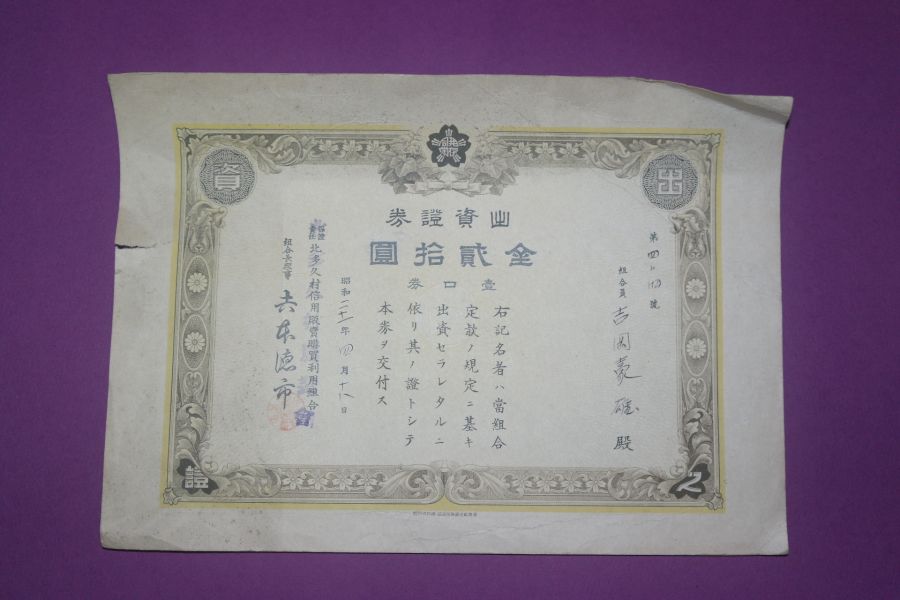 出資
之證
出資證券
金貳拾圓
壹口券
第四〻四號
組合員 吉岡豪雄 殿
右記名者ハ當組合
定款ノ規定ニ基キ
出資セラレタルニ
依リ其ノ證トシテ
本券ヲ交付ス
昭和二十一年四月十八日
保證責任 北多久村信用販賣購買利用組合
組合長理事 吉本德市